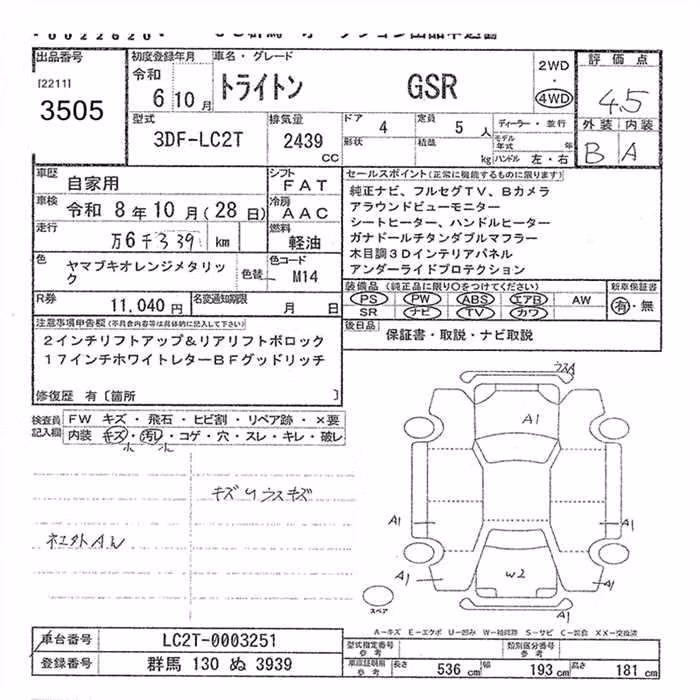 出品番号
[2211]
3505
初度登録年月
令和
6 10 月
車名・グレード
トライトン GSR
2WD
・
4WD
評価点
4.5
外装 内装
B A
型式
3DF-LC2T
排気量
2439
cc
ドア
4
定員
5 人
形状
積載
kg
ディーラー・並行
モデル年式 年
ハンドル 左・右
車歴
自家用
シフト
FAT
車検
令和 8 年 10 月 ( 28 日)
冷房
AAC
走行
万6千339 km
燃料
軽油
色
ヤマブキオレンジメタリック
色替
色コード
M14
R券
11,040 円
名変通知期限
月 日
セールスポイント(正常に機能するものに限ります)
純正ナビ、フルセグTV、Bカメラ
アラウンドビューモニター
シートヒーター、ハンドルヒーター
ガナドールチタンダブルマフラー
木目調3Dインテリアパネル
アンダーライドプロテクション
装備品(純正品に限り○をつけてください)
PS PW ABS エアB AW
SR ナビ TV カワ
新車保証書
有・無
後日品
保証書・取説・ナビ取説
注意事項申告欄(不具合内容等は具体的に記入して下さい)
2インチリフトアップ&リアリフトボロック
17インチホワイトレターBFグッドリッチ
修復歴 有 [箇所 ]
検査員記入欄
FW キズ・飛石・ヒビ割・リペア跡・×要
内装 キズ・汚レ・コゲ・穴・スレ・キレ・破レ
小 小
キズ
ウスキズ
社外AW
A1
A1
A1
A1
A1
W2
スペア
A-キズ E-エクボ U-凹み W-補修跡 S-サビ C-腐食 XX-交換済
車台番号
LC2T-0003251
登録番号
群馬 130 ぬ 3939
型式指定番号
参考
類別区分番号
参考
車庫証明用
参考
長さ 536 cm
幅 193 cm
高さ 181 cm